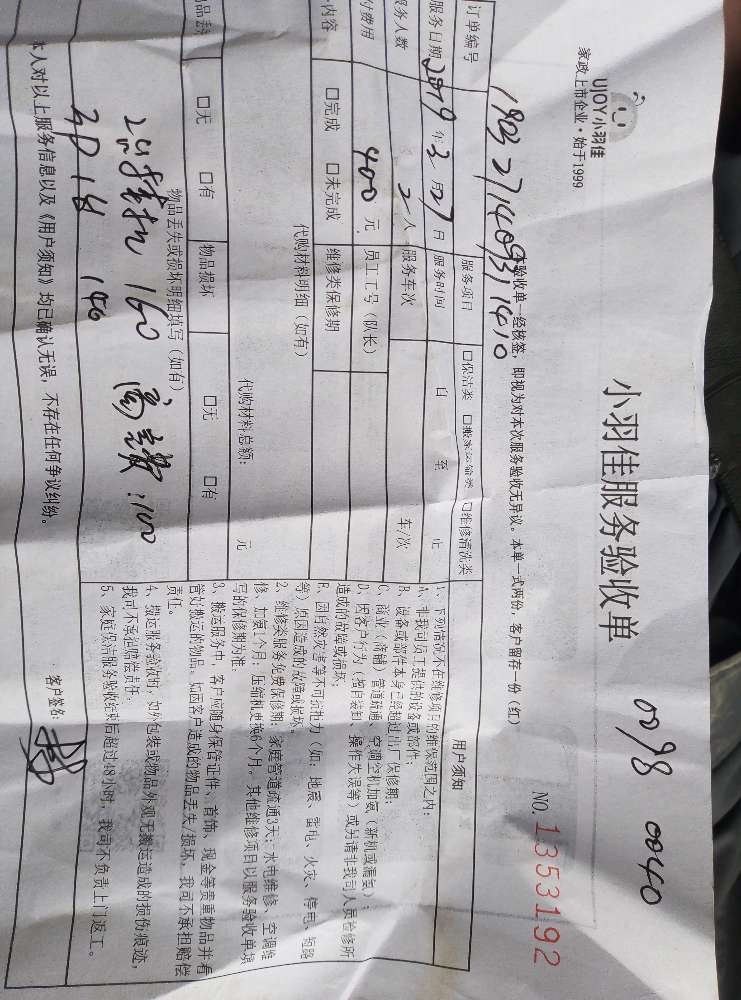 UJOY小羽佳
家政上市企业·始于1999
小羽佳服务验收单
0098 0040
NO.1353192
本验收单一经核签，即视为对本次服务验收无异议。本单一式两份，客户留存一份（红）
订单编号 190327140931410
服务项目 □保洁类 □搬家运输类 □维修清洗类
服务日期 2019年3月27日 服务时间 自 至 止
服务人数 2人 服务车次 车/次
付费用 400元 员工工号（队长）
内容 □完成 □未完成 维修类保修期
代购材料明细（如有）
代购材料总额： 元
物品丢 □无 □有 物品损坏 □无 □有
物品丢失或损坏明细填写（如有）
160 :100
3P 1台 140
本人对以上服务信息以及《用户须知》均已确认无误，不存在任何争议纠纷。
客户签名：
用户须知
1、下列情况不在维修项目的维保范围之内：
A、非我司员工提供的设备或部件；
B、设备或部件本身已经超过出厂保修期；
C、商业（商铺）管道疏通、空调空机加氟（新机或漏氟）；
D、因客户行为（擅自装卸、操作失误等）或另请非我司人员检修所
造成的故障或损坏；
E、因自然灾害等不可抗拒力（如：地震、雷电、火灾、停电、短路
等）原因造成的故障或损坏。
2、维修类服务免费保修期：家庭管道疏通3天；水电维修、空调维
修、加氟1个月；压缩机更换6个月。其他维修项目以服务验收单填
写的保修期为准。
3、搬运服务中，客户应随身保管证件、首饰、现金等贵重物品并看
管好搬运的物品。如因客户造成的物品丢失/损坏，我司不承担赔偿
责任。
4、搬运服务验收时，如外包装或物品外观无搬运造成的损伤痕迹，
我司不承担赔偿责任。
5、家庭保洁服务验收结束后超过48小时，我司不负责上门返工。